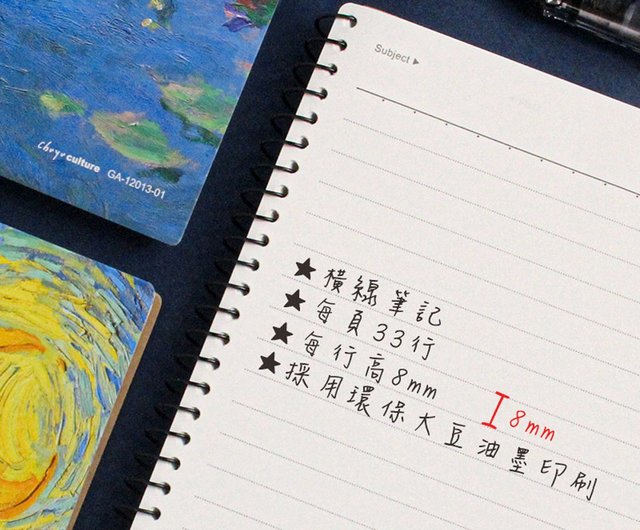 Subject ▶
Chrysculture GA-12013-01
★橫線筆記
★每頁33行
★每行高8mm
8mm
★採用環保大豆油墨印刷